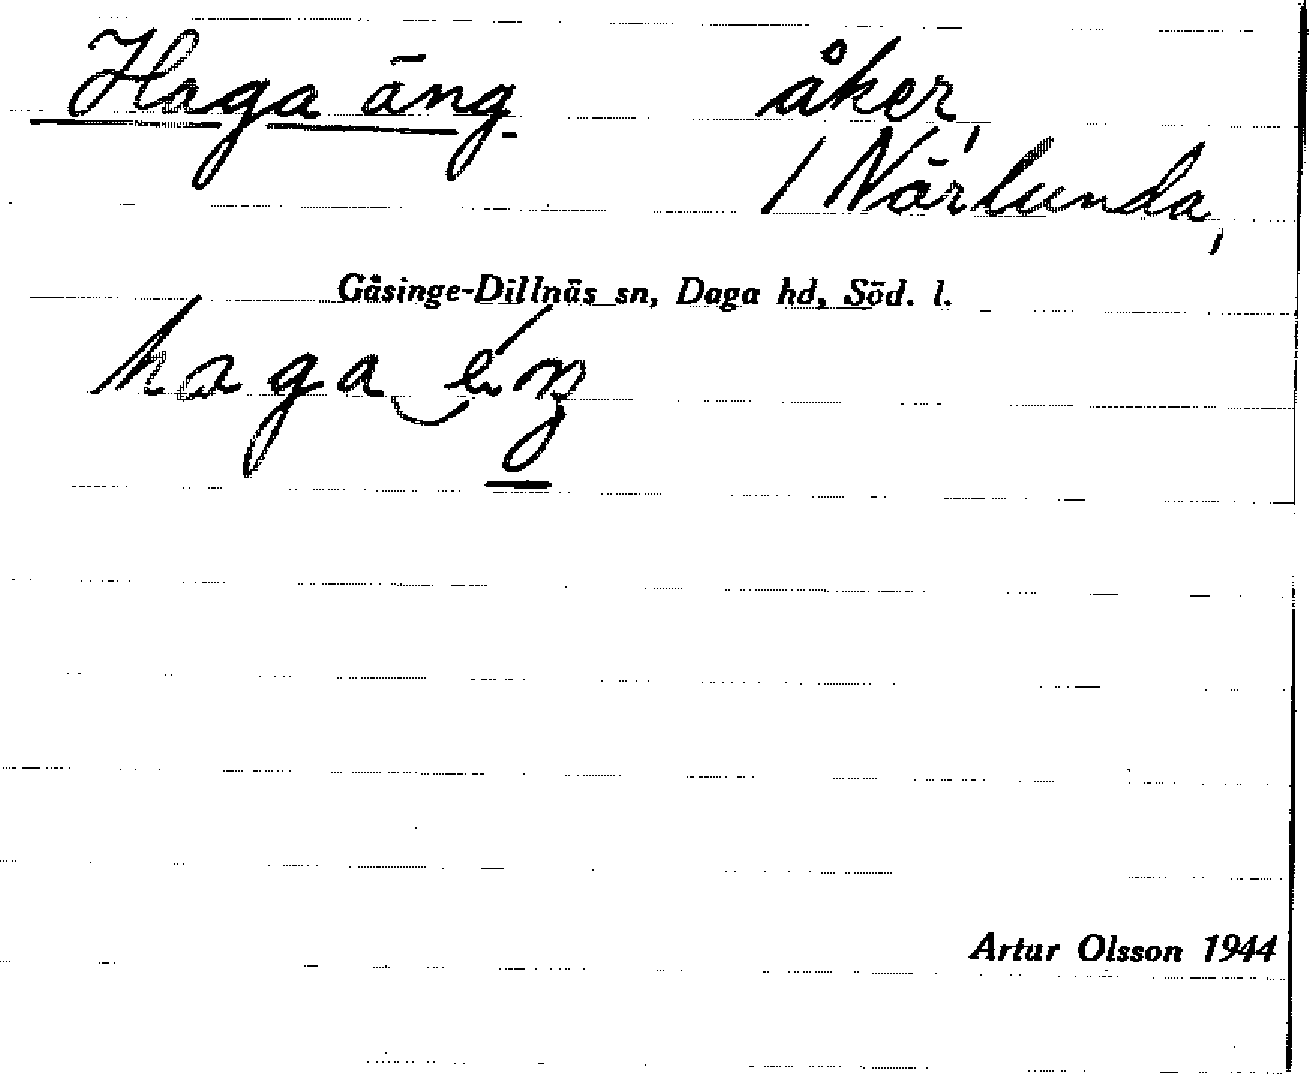 Haga äng åker,
1 Närlunda,
Gåsinge-Dillnäs sn, Daga hd, Söd. l.
haga
Artur Olsson 1944